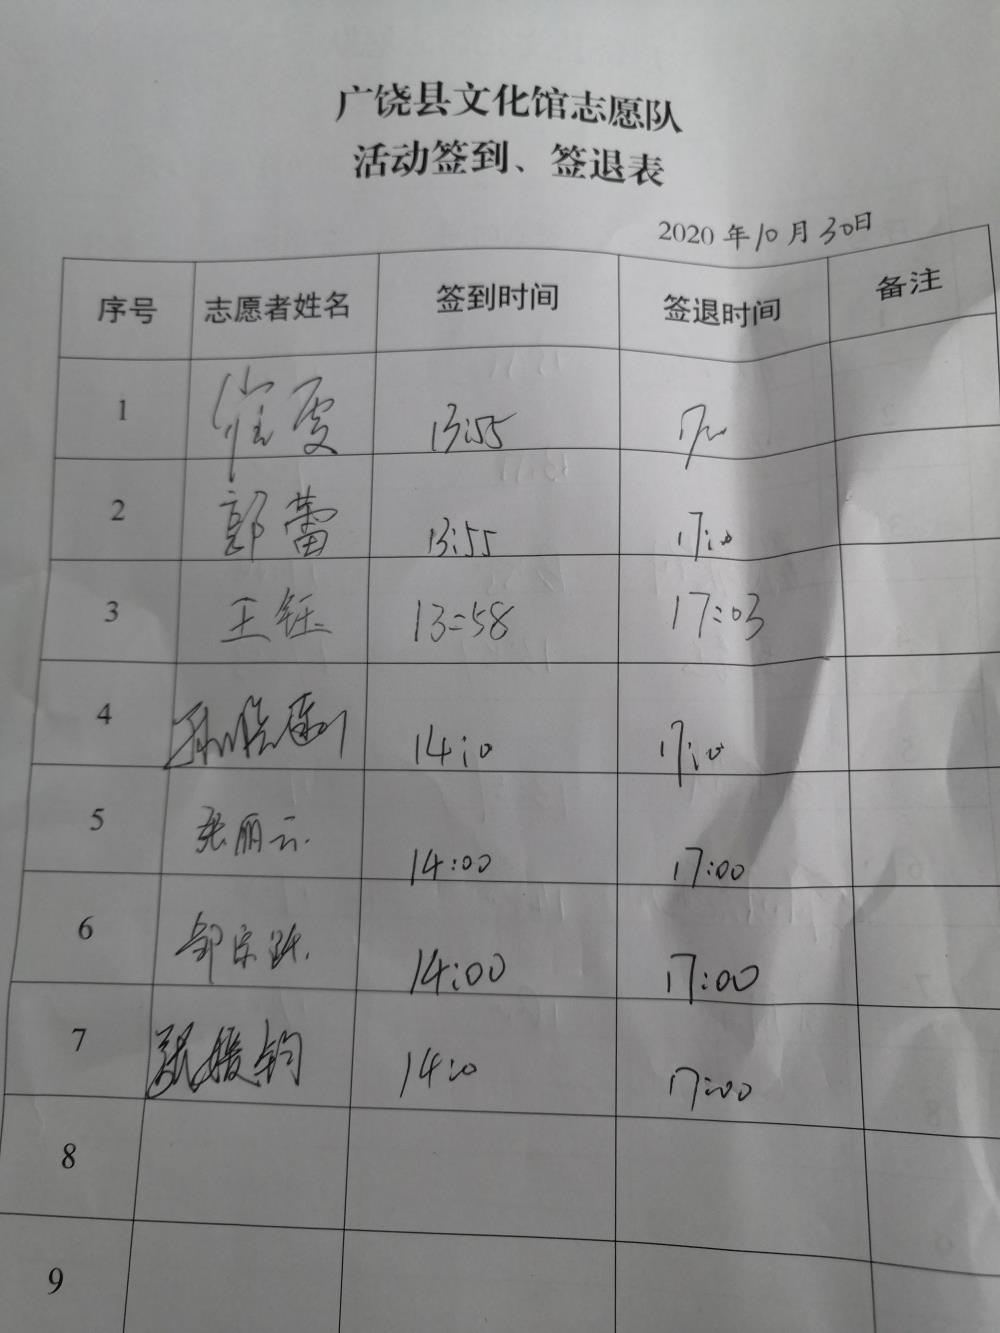 广饶县文化馆志愿队
活动签到、签退表
2020 年 10 月 30日
序号 志愿者姓名 签到时间 签退时间 备注
1 崔雯 13:55
2 郭蕾 13:55 17:0
3 王钰 13:58 17:03
4 14:0 17:0
5 张丽云 14:00 17:00
6 邹宗跃 14:00 17:00
7 张媛钧 14:0 17:00
8
9